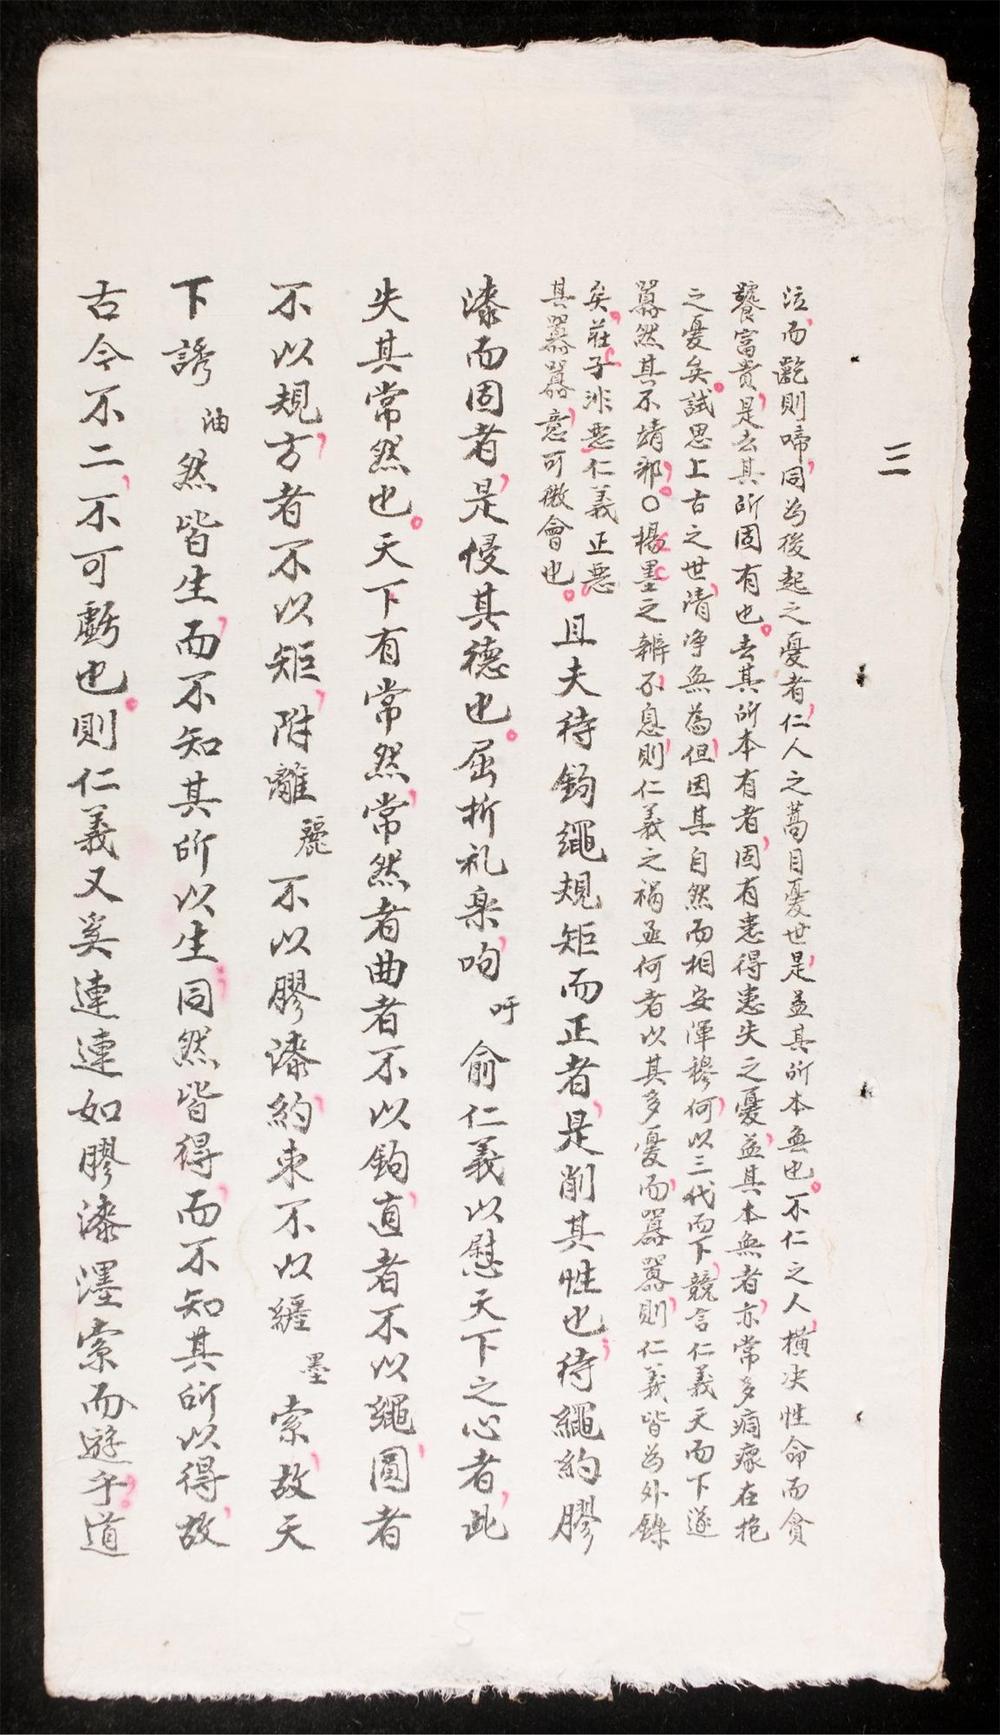 三
泣而齕則啼同為後起之憂者仁人之蒿目憂世是益其所本無也不仁之人橫决性命而貪
饕富貴是去其所固有也去其所本有者固有患得患失之憂益其本無者亦常多痌瘝在抱
之憂矣試思上古之世清净無為但因其自然而相安渾穆何以三代而下競言仁義天而下遂
囂然其不靖邪○楊墨之辨不息則仁義之禍亟何者以其多憂而囂囂則仁義皆為外鑠
矣莊子非惡仁義正惡
其囂囂意可微會也
且夫待鈎繩規矩而正者是削其性也待繩約膠
漆而固者是侵其德也屈折礼楽呴吁俞仁義以慰天下之心者此
失其常然也天下有常然常然者曲者不以鈎直者不以繩圓者
不以規方者不以矩附離麗不以膠漆約束不以纆墨索故天
下誘油然皆生而不知其所以生同然皆得而不知其所以得故
古今不二不可虧也則仁義又奚連連如膠漆纆索而遊乎道